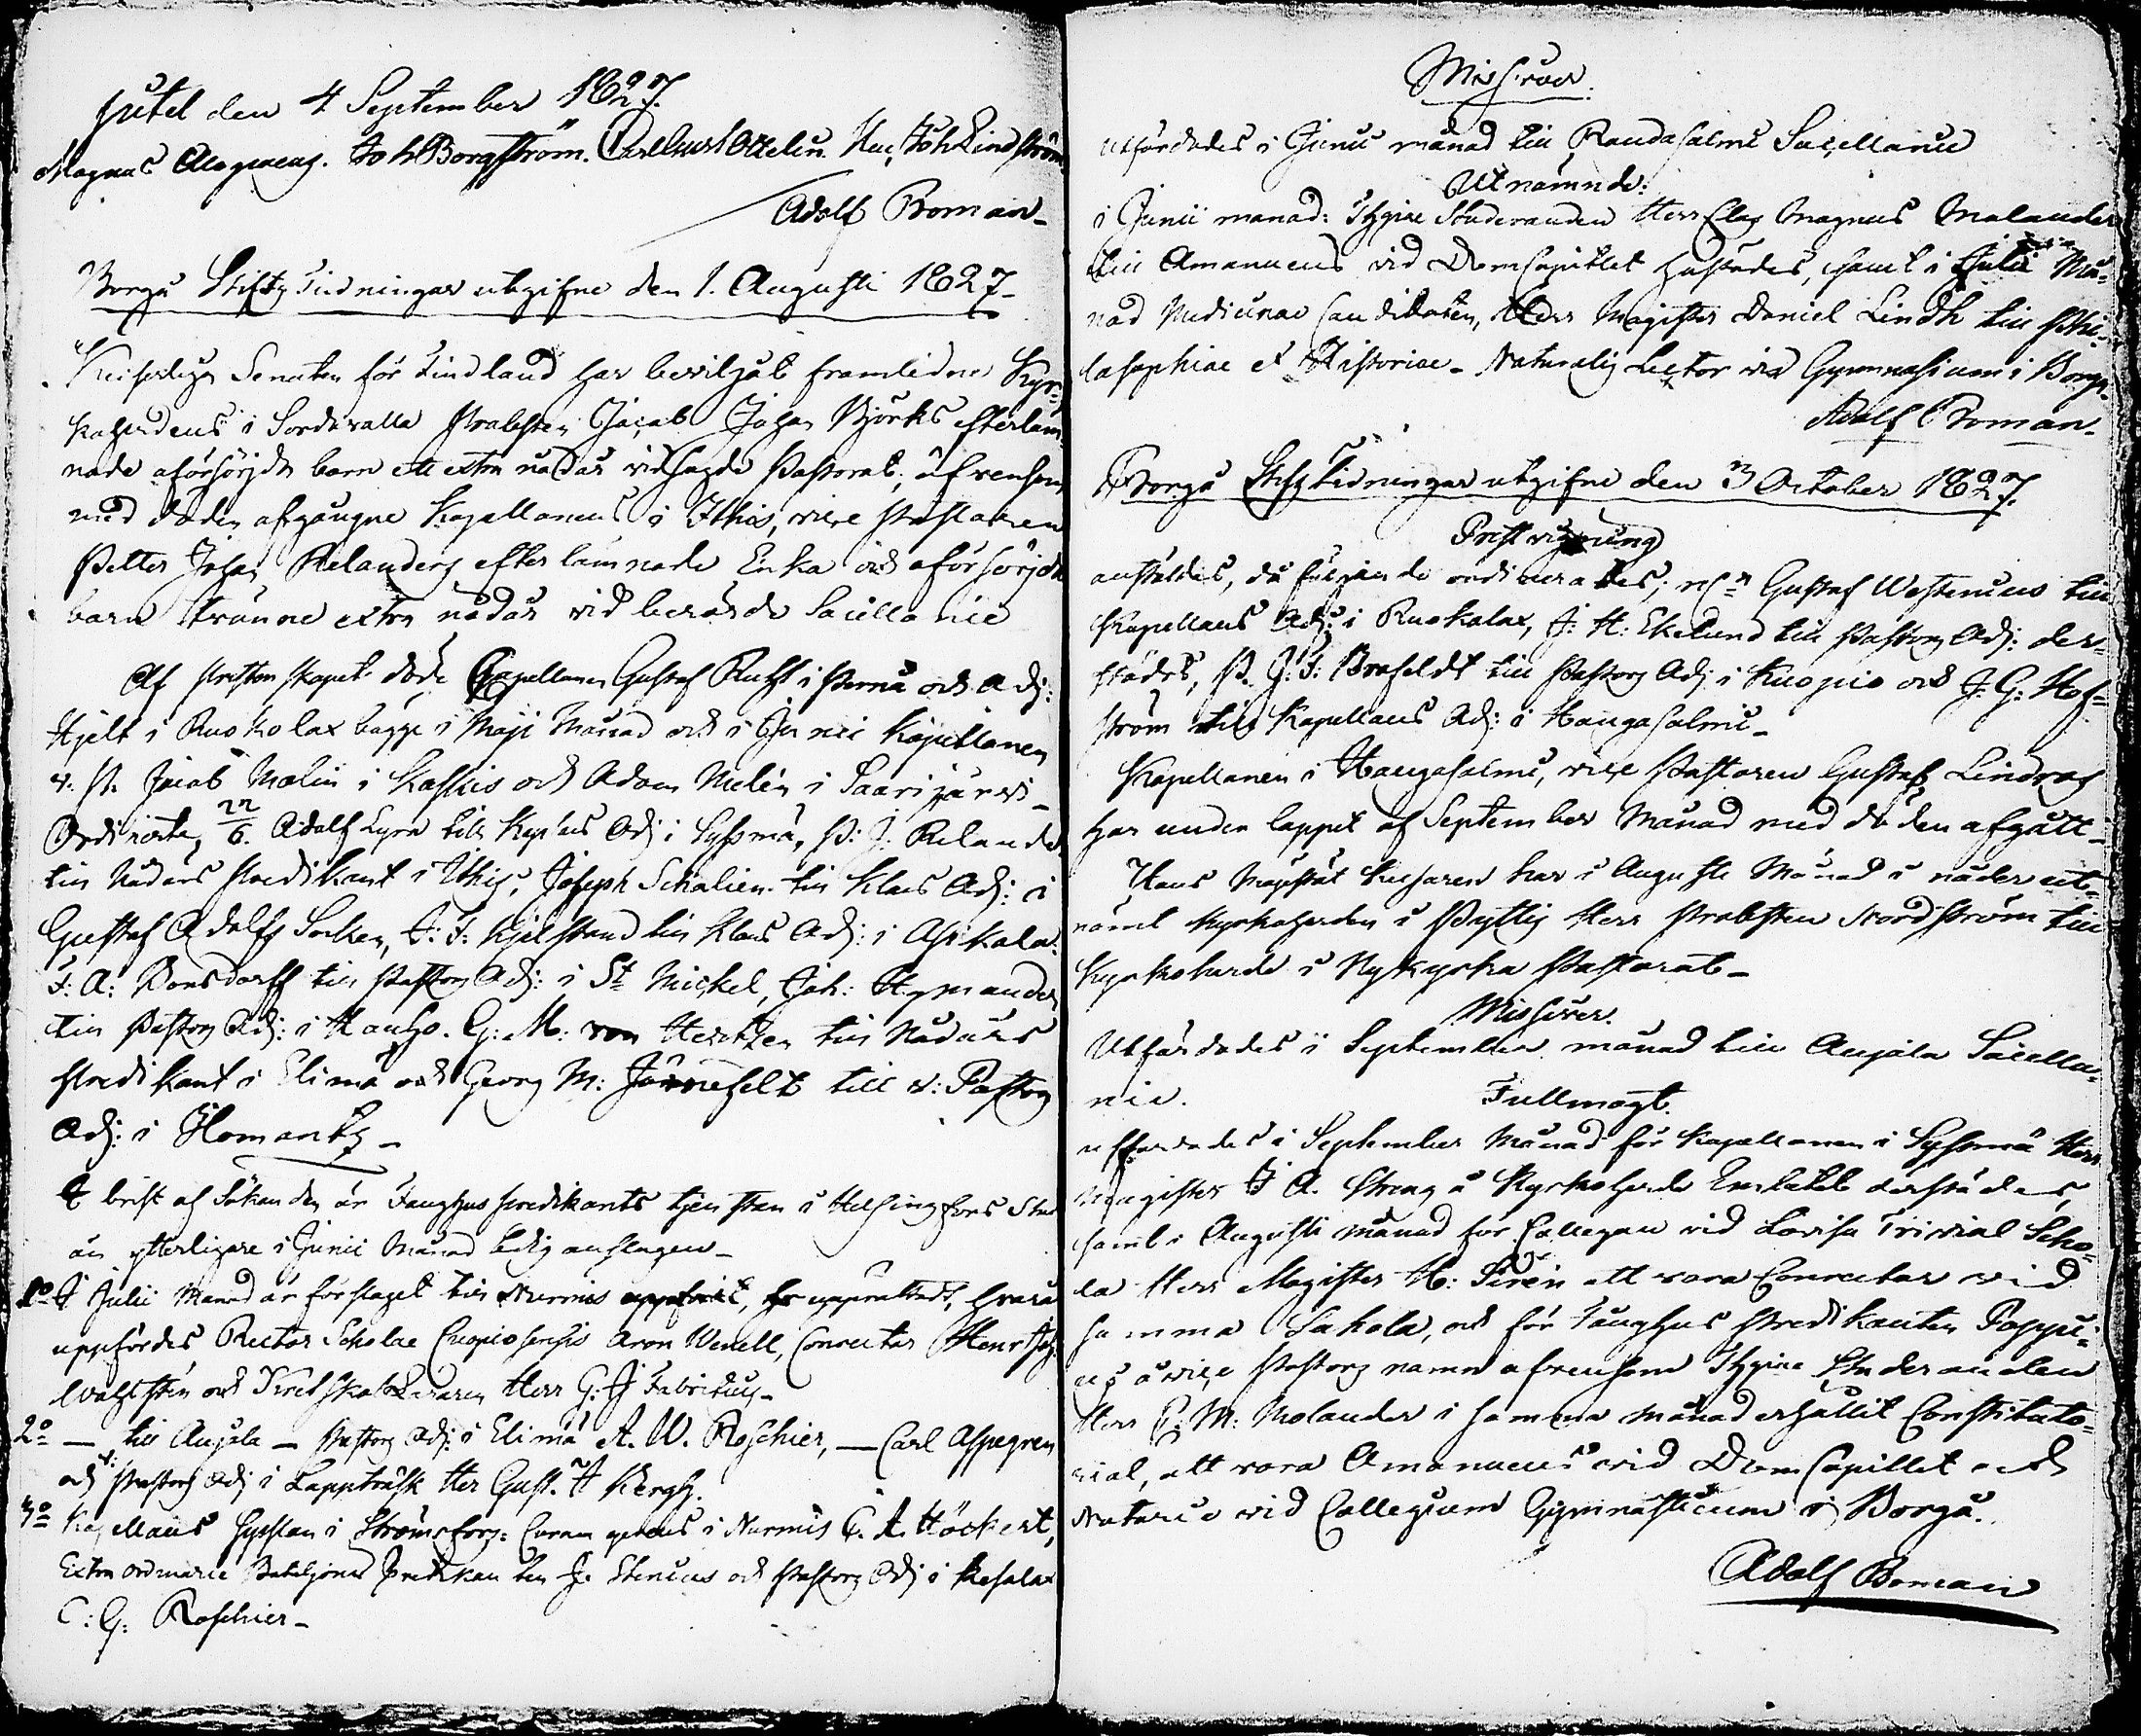 Jutel den 4 September 1827.
Magnus Alopaeus. Joh Borgström. Carl Ottelin. Joh Lindström
Adolf Boman
Borgå Stifts Tidningar utgifne den 1. Augusti 1827
Keiserliga Senaten för Finland har beviljat framledne Kyr-
koherdens i Sordavalla Probsten Jacob Johan Björks efterläm-
nade oförsörjda barn ett extra nådår vid sagde Pastorat, äfvensom
med döden afgångne Kapellanens i Ithis, vice Pastoren
Petter Johan Relanders efterlämnade Enka och oförsörjda
barn tvänne extra nådår vid berörde Sacellanie
Af Presterskapet döde Capellanen Gustaf Ruth i Perno och Adj:
Hjelt i Ruokolax bägge i Maji Månad och i Junii Kapellanen
v. P. Jacob Molin i Kaskis och Adam Melén i Saarijärvi
Ordinerte, 22/6. Adolf Lyra till Kap:ns Adj i Sysmä, P: J: Relander
till Nådårs Predikant i Ithis, Joseph Schalien till Klans Adj: i
Gustaf Adolfs Socken, J: F: Hjelstrand till Klans Adj: i Asikala.
F: A: Bonsdorff till Pastors Adj: i St Michel, Joh: Hymander
till Pastors Adj: i Hauho. G: M: von Hertzen till Nådårs
Predikant i Elimä och Georg M: Järnefelt till v: Pastors
Adj: i Ilomants
I brist af Sökanden är Tukthus Predikants tjensten i Helsingfors Stad
än ytterligare i Junii Månad ledig anslagen
1o I Julii Månad är förslaget till Nurmis uppfört, upprättadt, hvarå
uppfördes Rector Scholae Cuopiosensis Aron Wenell, Conrector Henr Joh.
Wahlstén och Kretsskole Läraren Herr G: J Fabritius
2o — till Anjala — Pastors Adj: i Elimä A. W. Roschier, — Carl Aspegren
och v: Pastors Adj i Lappträsk Herr Gust: A Bergh.
3o Kapellans Sysslan i Strömsfors: Curam gerens i Nurmis C. A. Höckert,
Extra ordinarie Bataljons Predikanten J. Stenius och Pastors Adj i Kesälax
C: G: Roschier
Missiver.
Utfärdades i Junii månad till Randasalmi Sacellanie
Utnämnde:
i Junii månad: Ithyrne Studeranden Herr Clas Magnus Molander
till Amanuens vid DomCapitlet härstädes, samt i Julii Må-
nad Medicinae Candidaten, Herr Magister Daniel Lindh till Phi-
losophiae et Historiae Naturalis Lector vid Gymnasium i Borgå.
Adolf Boman
Borgå Stifts Tidningar utgifne den 3 October 1827.
Prestvigning
anstäldes, då följande ordinerades, nl: Gustaf Westenius till
Kapellans Adj: i Ruokolax, J: H: Ekelund till Pastors Adj: der-
städes, P. J: F: Brofeldt till Pastors Adj i Kuopio och J: G: Hof-
ström till Kapellans Adj: i Hangasalmi
Kapellanen i Hangasalmi, vice Pastoren Gustaf Lindroos
har under loppet af September Månad med döden afgått
Hans Majestät Kejsaren har i Augusti Månad i nåder ut-
nämt Kyrkoherden i Pyttis Herr Probsten Nordström till
Kyrkoherde i Nykyrka Pastorat
Missiver.
Utfärdades i September månad till Anjala Sacella-
nie.
Fullmagt.
utfärdades i September Månad för Kapellanen i Sysmä Herr
Magister J A. Streng å Kyrkoherde Embetet derstädes,
samt i Augusti månad för Collegan vid Lovisa Trivial Scho-
la Herr Magister H: Sirén att vara Conrector vid
samma Schola, och för Tukthus Predikanten Poppi-
us å vice Pastors namn äfvensom Ithyrne Studeranden
Herr C: M: Molander i samma månad erhållit Constituto-
rial, att vara Amanuens vid DomCapitlet och
Notarie vid Collegium Gymnasticum i Borgå.
Adolf Boman